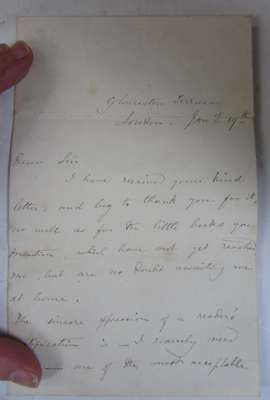 Gloucester Terrace
London. Jany 19th
Dear Sir
I have received your kind
letter, and beg to thank you for it,
as well as for the little books you
mention, which have not yet reached
me, but are no doubt awaiting me
at home.
The sincere expression of a reader's
gratification is — I scarcely need
— one of the most acceptable